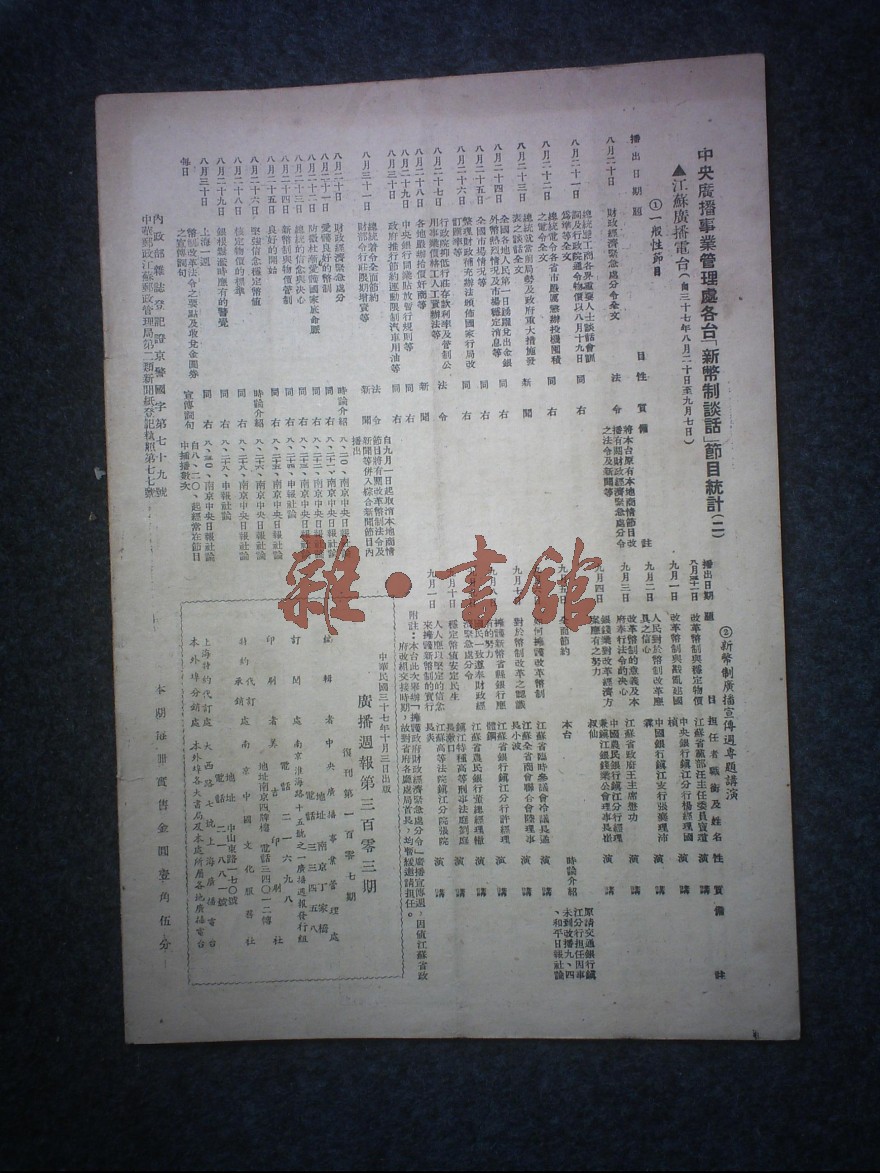 中央廣播事業管理處各台「新幣制談話」節目統計(二)
▲江蘇廣播電台(自三十七年八月二十日至九月七日)
①一般性節目
播出日期 題 目 性質 備 註
八月二十日 財政經濟緊急處分令全文 法令 將本台原有本地商情節目改
播有關財政經濟緊急處分令
之法令及新聞等
八月二十一日 總統接見工商各界重要人士談話會訓
詞及行政院通令物價以八月十九日
為準等全文 同右
八月二十二日 總統電令各省市嚴厲懲辦投機囤積
之電令全文 同右
八月二十三日 總統就當前局勢及政府重大措施發
表之談話全文 新聞
八月二十四日 全國各地人民第一日踴躍兌出金銀
外幣熱烈情況及市場穩定消息等 同右
八月二十五日 全國市場情況等 同右
八月二十六日 整理財政補充辦法頒佈國家行局改
訂匯率等 同右
八月二十七日 行政院抑低行莊存款利率及管制公
用事業價格與人工資辦法等 法令
八月二十八日 各地嚴辦抬價奸商等 新聞
八月二十九日 中央銀行開業貼放暫行規則等 同右
八月三十日 政府推行節約運動限制汽車用油等 同右
八月三十一日 總統着令全面節約 法令
財部令行莊限期增資等 新聞 自九月一日起取消本地商情
節目將有關改革幣制法令及
新聞等併入綜合新聞節目內
播出
八月二十日 財政經濟緊急處分 時論介紹 八、二〇、南京中央日報社論
八月二十一日 愛護良好的幣制 同右 八、二一、南京中央日報社論
八月二十二日 防微杜漸愛護國家底命脈 同右 八、二二、南京中央日報社論
八月二十三日 總統的信念與決心 同右 八、二三、南京中央日報社論
八月二十四日 新幣制與物價管制 同右 八、二四、申報社論
八月二十五日 良好的開始 同右 八、二五、南京中央日報社論
八月二十六日 堅強信念穩定幣值 時論介紹 八、二六、南京中央日報社論
八月二十八日 核定物價的標準 同右
八月二十九日 銀根鬆濫時應有的警覺 同右 八、二六、申報社論
八月三十日 上海一週 同右 八、三〇、南京中央日報社論
每日 幣制改革法令之要點及收兌金圓券
之宣傳詞句 宣傳詞句 自八、二〇、起經常在節目
中插播數次
內政部雜誌登記證京警國字第七十九號
中華郵政江蘇郵政管理局第二類新聞紙登記執照第七七號
②新幣制廣播宣傳週專題講演
播出日期 題 目 担任者職銜及姓名 性質 備 註
八月三十一日 改革幣制與穩定物價 江蘇省黨部汪主任委員寶瑄 演講
九月一日 改革幣制與戡亂建國 中央銀行鎮江分行楊經理國
楨 演講
九月二日 人民對於幣制改革應
具之信心 中國銀行鎮江支行張襄理沛
霖 演講
九月三日 改革幣制的意義及本
府奉行法令的決心 江蘇省政府王主席懋功 演講
九月四日 銀錢業對改革經濟方
案應有之努力 中國農民銀行鎮江分行經理
兼鎮江銀錢業公會理事長崔
叔仙 演講 原請交通銀行鎮
江分行担任因事
未到改播九、四
、和平日報社論
九月五日 全面節約 本台 時論介紹
如何擁護改革幣制 江蘇省臨時參議會冷議長遹 演講
對於幣制改革之認識 江蘇全省商會聯合會陸理事
長小波 演講
擁護新幣省縣銀行應
有的努力 江蘇省銀行鎮江分行許經理
體鋼 演講
民一致遵奉財政經
濟緊急處分令 江蘇省農民銀行董總經理轍 演講
穩定幣值安定民生 鎮江特種高等刑事法庭劉庭
長漱口 演講
人人應以堅定的信念
來擁護新幣制的實行 江蘇高等法院鎮江分院張院
長表 演講
附註:本台此次舉辦「擁護政府財政經濟緊急處分令」廣播宣傳週,因值江蘇省政
府改組交接時期,故對省府各廳處局首長,均暫緩邀請担任。
中華民國三十七年十月三日出版
廣播週報第三百零三期
復刊第一百零七期
編輯者 中央廣播事業管理處
地址 南京丁家橋
電話 三三四五八
訂閱處 南京淮海路十五號之一廣播週報發行組
電話 二一六九八
印刷者 美吉印刷社
地址南京四牌樓 電話三四〇一二轉
特約承銷處 南京中國文化服務社
地址 中山東路一七〇號
電話 二一八八一號
上海特約代訂處 大西路七號上海廣播電台
本外埠分銷處 本外埠各大書局及本處所屬各地廣播電台
本期每冊實售金圓壹角伍分
雜·書館